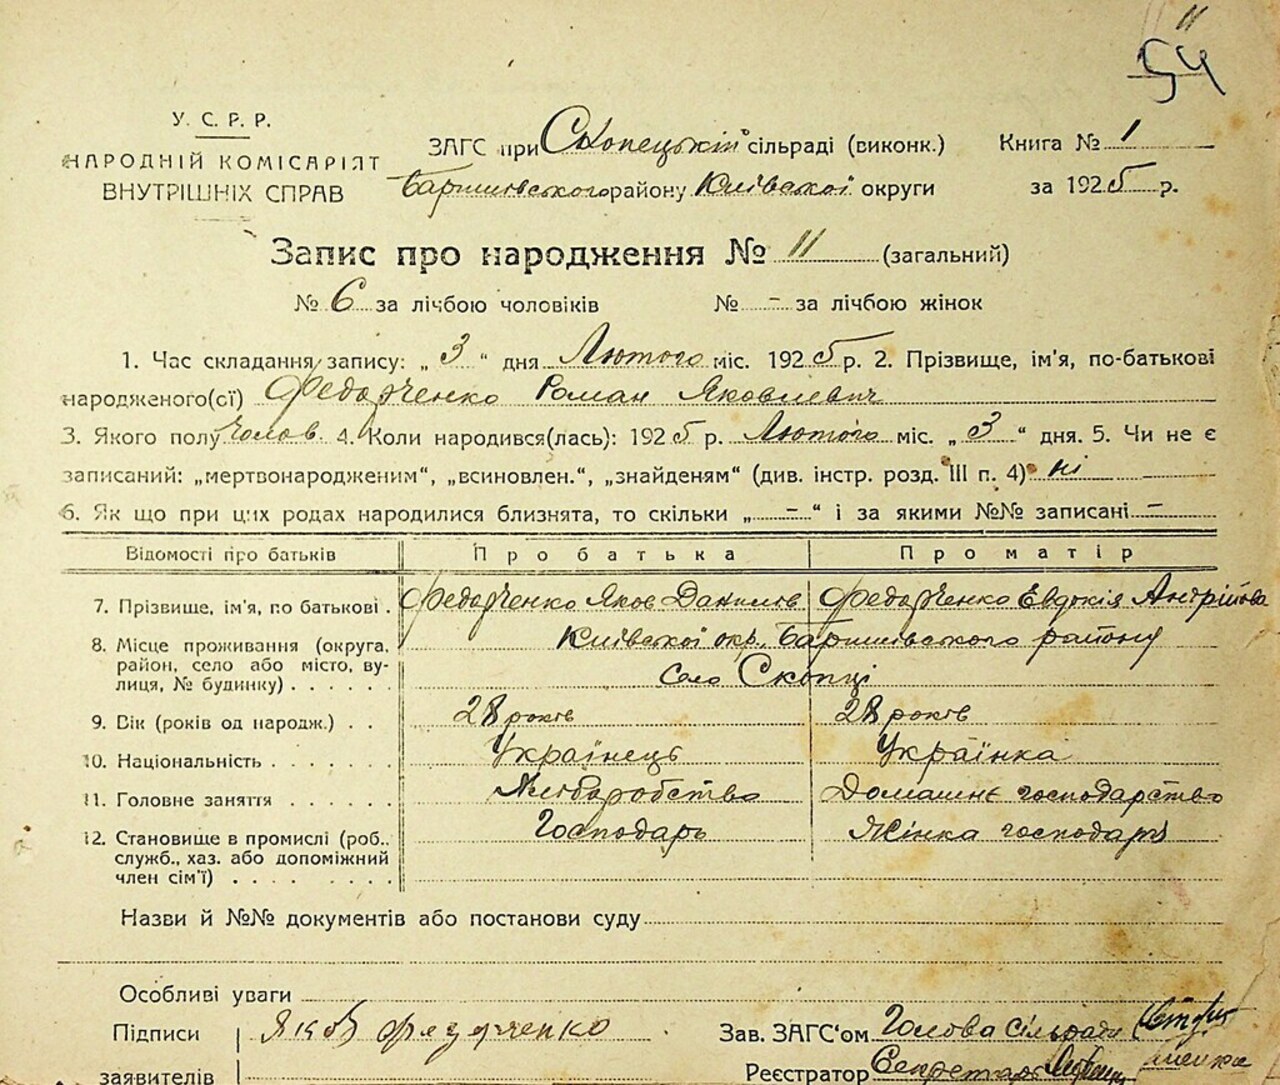 11
54
У. С. Р. Р.
НАРОДНІЙ КОМІСАРІЯТ
ВНУТРІШНІХ СПРАВ
ЗАГС при Скопецькій сільраді (виконк.)
Баришівського району Київської округи
Книга № 1
за 1925 р.
Запис про народження № 11 (загальний)
№ 6 за лічбою чоловіків № - за лічбою жінок
1. Час складання запису: „ 3 “ дня Лютого міс. 1925 р. 2. Прізвище, ім'я, по-батькові
народженого(ої) Федорченко Роман Яковлевич
3. Якого полу чолов. 4. Коли народився(лась): 1925 р. Лютого міс. „ 3 “ дня. 5. Чи не є
записаний: „мертвонародженим“, „всиновлен.“, „знайденям“ (див. інстр. розд. III п. 4) ні
6. Як що при цих родах народилися близнята, то скільки „ - “ і за якими №№ записані -
Відомості про батьків Про батька Про матір
7. Прізвище, ім'я, по батькові . Федорченко Яков Данилов Федорченко Евдокія Андрійова
8. Місце проживання (округа, Київської окр., Баришівського району
район, село або місто, ву-
лиця, № будинку) . . . . . . Село Скопці
9. Вік (років од народж.) . . 28 років 28 років
10. Національність . . . . . . . Українець Українка
11. Головне заняття . . . . . . Хліборобство Домашнє господарство
12. Становище в промислі (роб., Господарь Жінка господаря
служб., хаз. або допоміжний
член сім'ї) . . . . . . . . .
Назви й №№ документів або постанови суду
Особливі уваги
Підписи Яков Федорченко Зав. ЗАГС'ом Голова Сільради
заявителів Реєстратор Секретарь